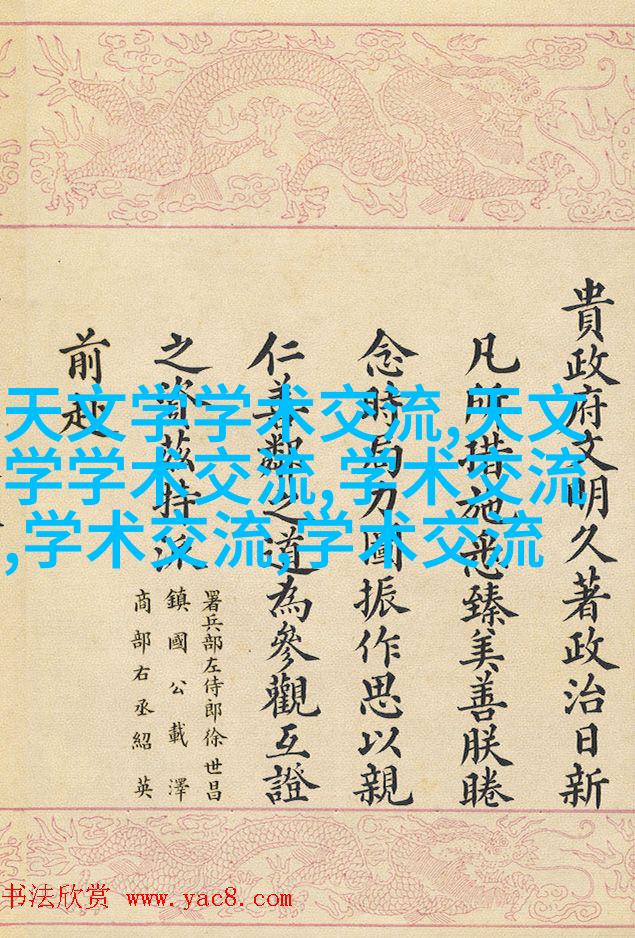 貴政府文明久著政治日新
凡所措施悉臻美善朕睠
念時局力圖振作思以親
仁善鄰之道為參觀互證
之資茲特派
署兵部左侍郎徐世昌
鎮國公載澤
商部右丞紹英
前赴
天文学学术交流,天文
学学术交流,学术交流
,学术交流,学术交流
书法欣赏 www.yac8.com